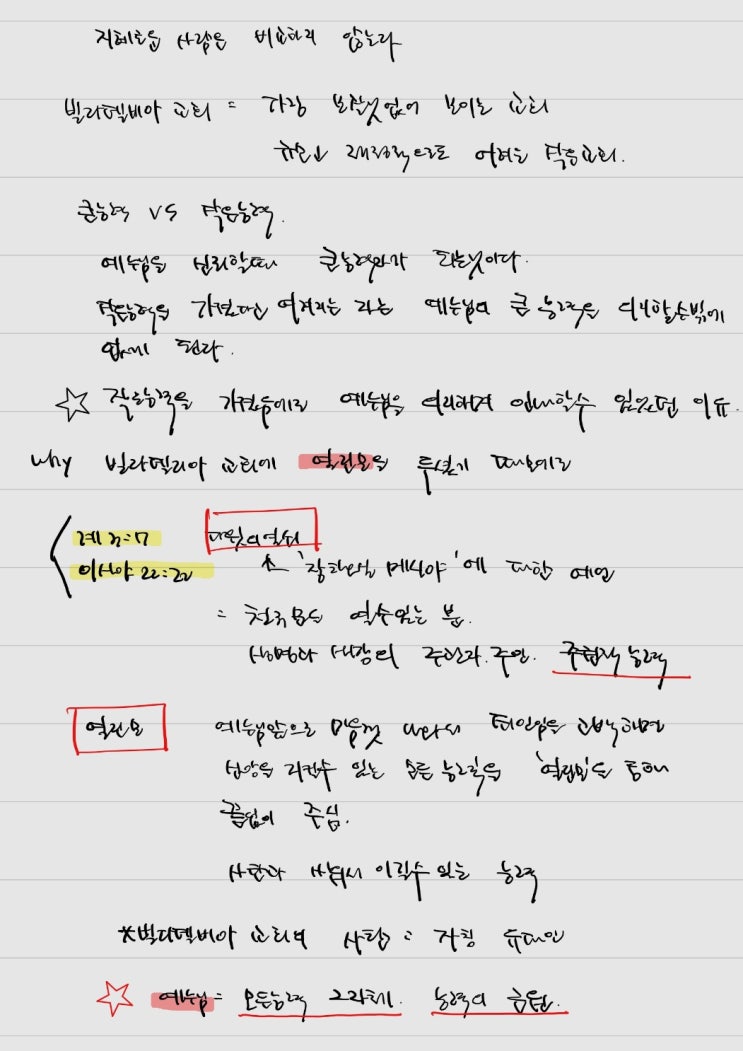 지혜로운 사람은 비교하지 않는다
빌라델비아 교회 = 가장 보잘것없어 보이는 교회
규모나 재정적으로도 어려운 작은교회.
큰능력 VS 작은능력.
예수님을 신뢰할때 큰능력자가 되는것이다.
작은능력을 가졌다고 여겨지는 자는 예수님의 큰 능력을 의지할수밖에
없게 된다.
☆ 작은능력을 가졌음에도 예수님을 의지하며 인내할수 있었던 이유.
Why 빌라델리아 교회에 열린문을 두셨기 때문에
계 3:7 다윗의열쇠
이사야 22:22 ↑ '장차오실 메시야'에 대한 예언
= 천국문도 열수있는 분.
생명과 사망의 주권자. 주인. 주권적 능력
열린문 예수님앞으로 마음껏 나와서 죄인임을 고백하며
신앙을 지킬수 있는 모든 능력을 '열린문'을 통해
끊임없이 주심.
사탄과 싸워서 이길수 있는 능력
*빌라델비아 교회의 사탄 = 자칭 유대인
☆ 예수님 = 모든능력 그자체. 능력의 근원.